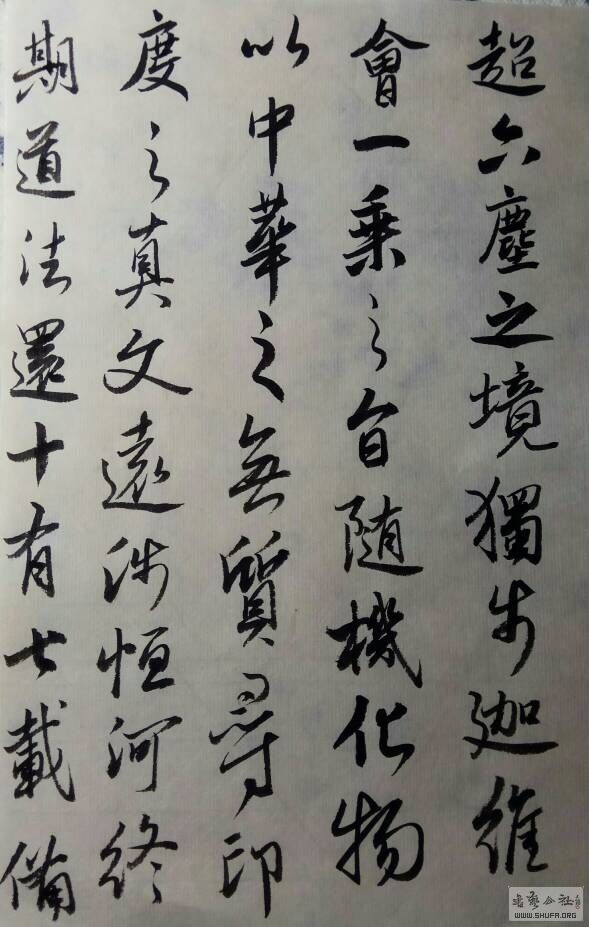 超六塵之境獨步迦維
會一乘之旨随機化物
以中華之無質尋印
度之真文遠涉恒河終
期道法還十有七載備
書藝公社
WWW.SHUFA.ORG